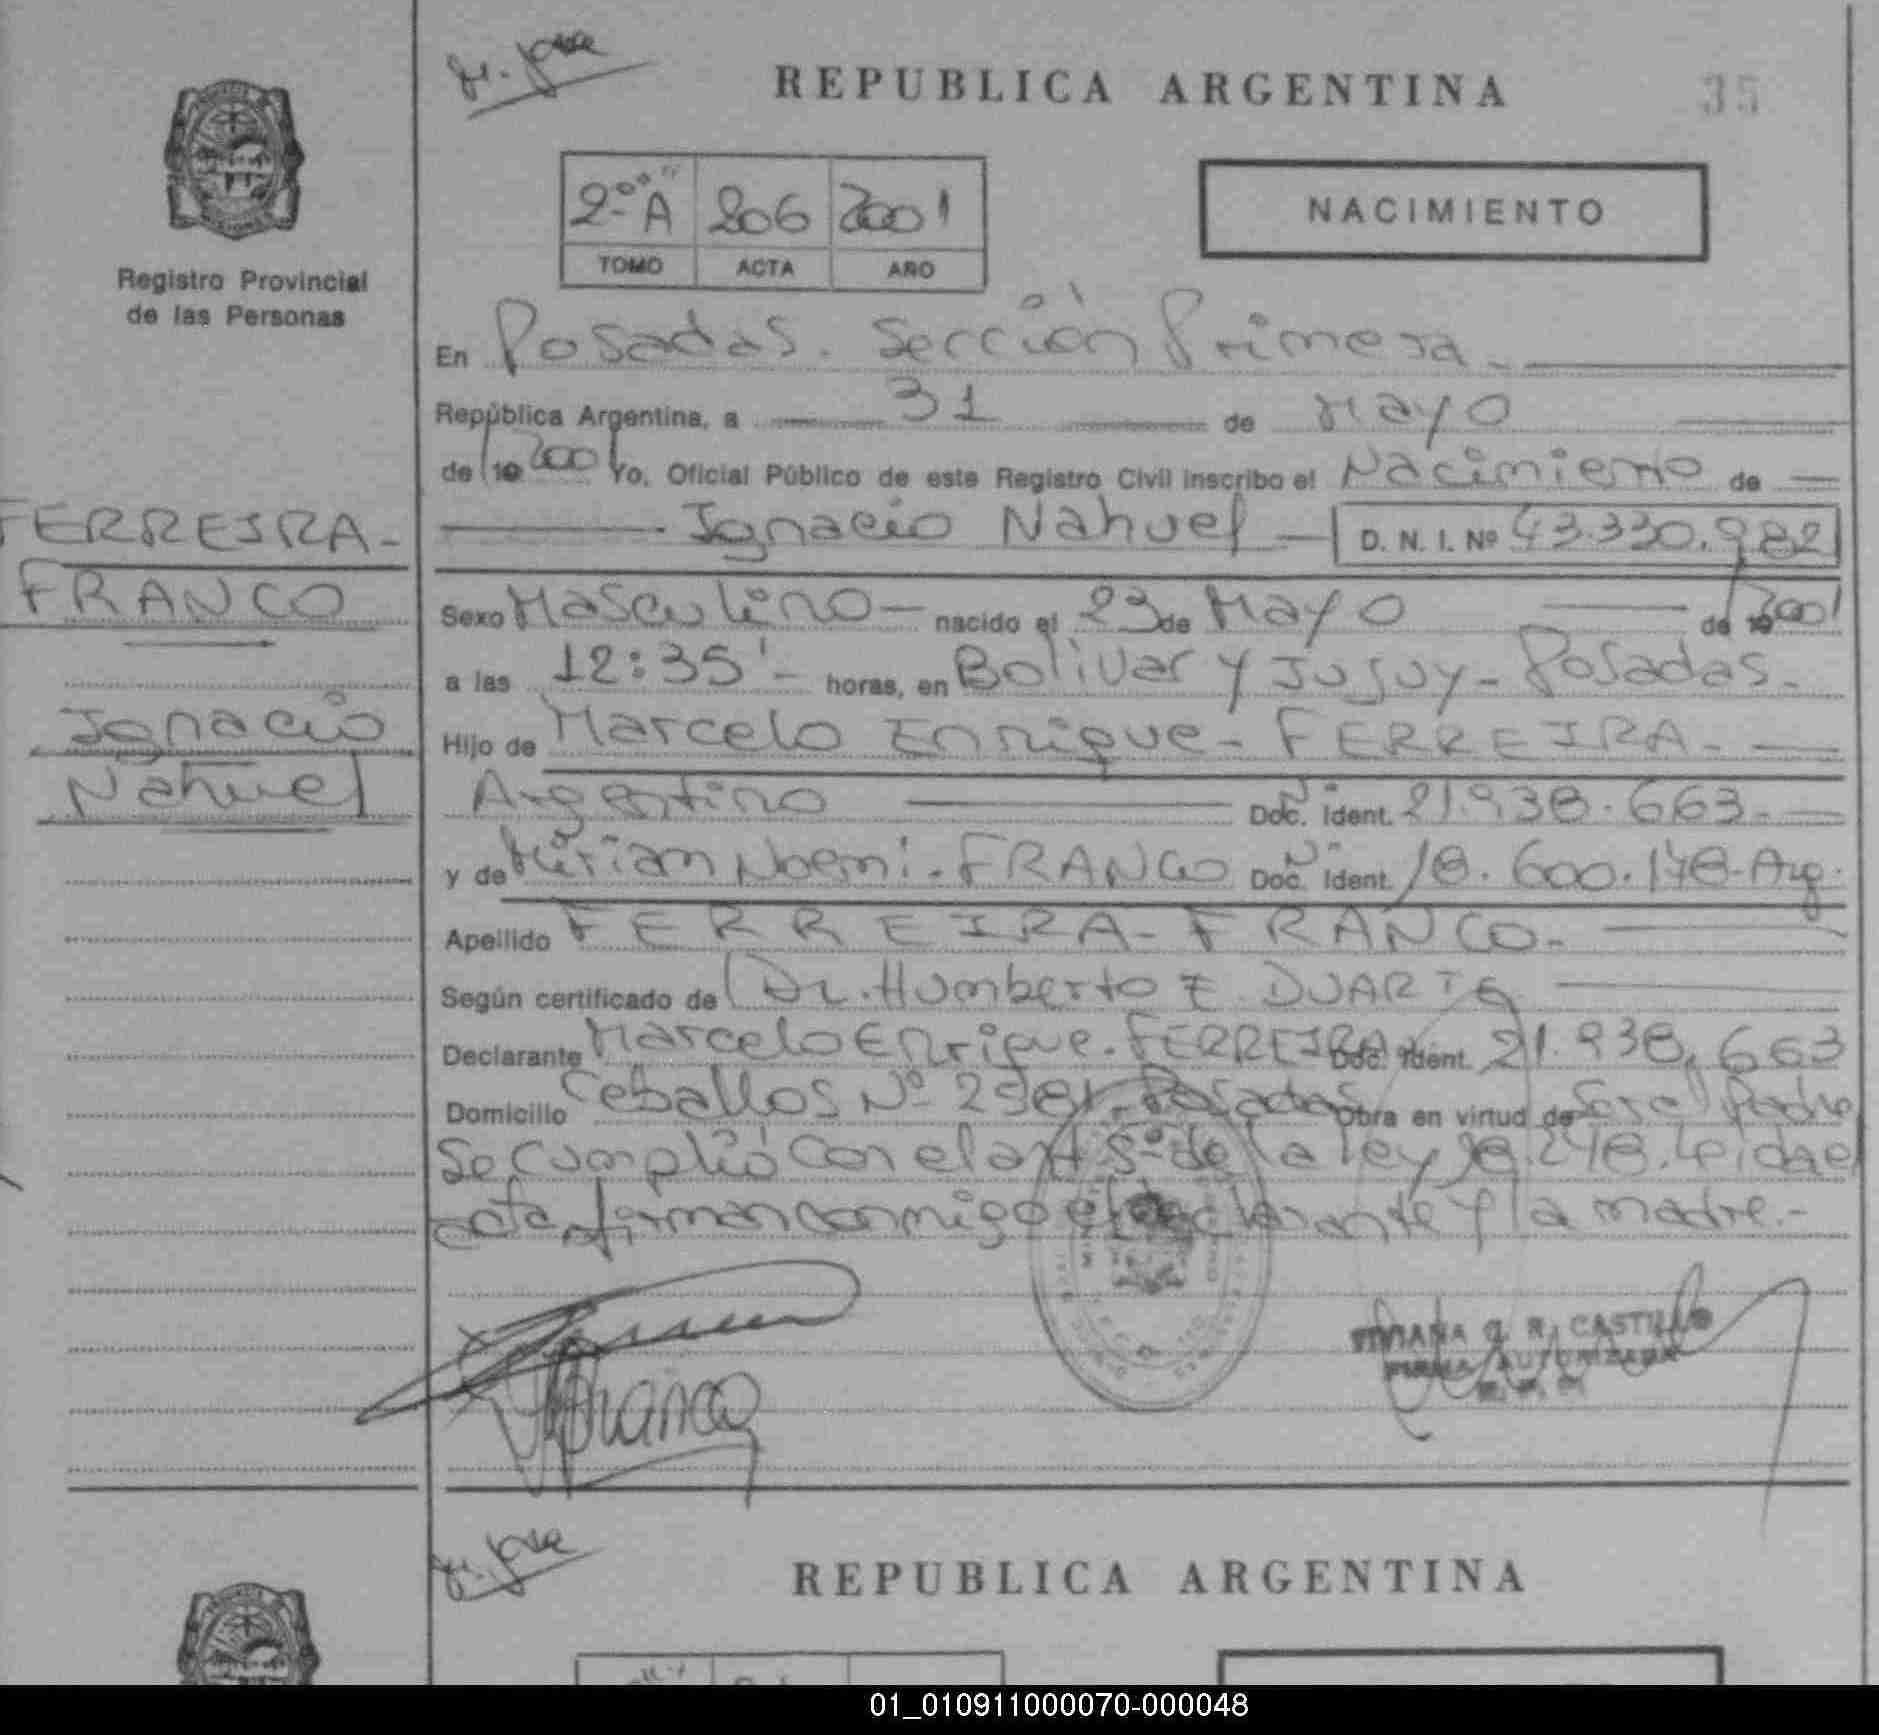 REPUBLICA ARGENTINA
35
2º A 206 2001
TOMO ACTA AÑO
NACIMIENTO
Registro Provincial
de las Personas
En Posadas. Sección Primera.
República Argentina, a 31 de Mayo
de 19 2001 Yo, Oficial Público de este Registro Civil inscribo el Nacimiento de
Ignacio Nahuel D. N. I. Nº 43.330.982
FERREIRA-
FRANCO
Ignacio
Nahuel
Sexo Masculino nacido el 23 de Mayo de 19 2001
a las 12:35' horas, en Bolivar y Jujuy - Posadas.
Hijo de Marcelo Enrique - FERREIRA.
Argentino Doc. Ident. Nº 21.938.663.
y de Mirian Noemi. FRANCO Doc. Ident. Nº 18.600.178. Arg.
Apellido FERREIRA-FRANCO.
Según certificado de Dr. Humberto E. DUARTE
Declarante Marcelo Enrique. FERREIRA Doc. Ident. 21.938.663
Domicilio Ceballos Nº 2981. Posadas Obra en virtud de Ser el Padre
Se cumplió con el art 5º de la ley 18.248. Leida el
acta, firman conmigo el declarante y la madre.-
VIVIANA G. R. CASTILLO
FIRMA AUTORIZADA
REPUBLICA ARGENTINA
01_010911000070-000048